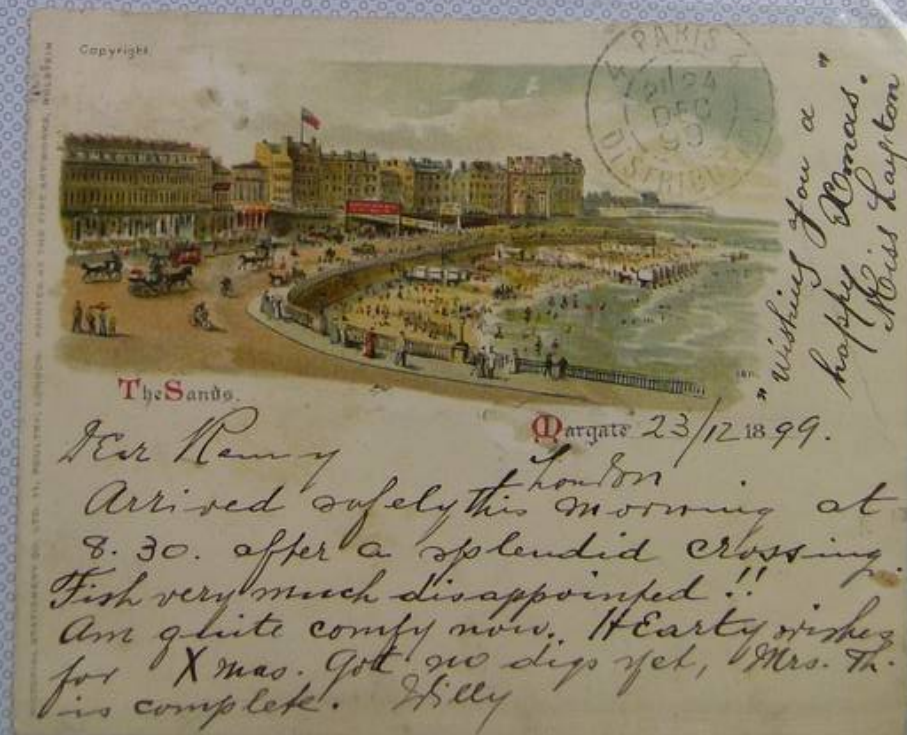 Copyright.
PARIS
24
DEC
DISTRIBUTION
"Wishing you a
happy Xmas."
Miss Layton
The Sands.
Margate 23/12 1899.
London
Dear
Arrived safely this morning at
8.30. after a splendid crossing.
Fish very much disappointed !!
Am quite comfy now. HEarty wishes
for Xmas. Got no digs yet, Mrs. Th.
is complete. Willy